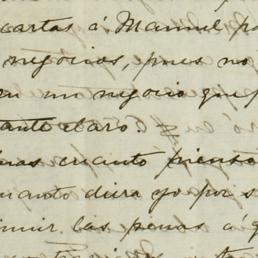 cartas á Manuel p
negocios, pues no
en un negocio que
tante claro.
inas cuanto pienso
uanto dura yo por s
imir las penas á q